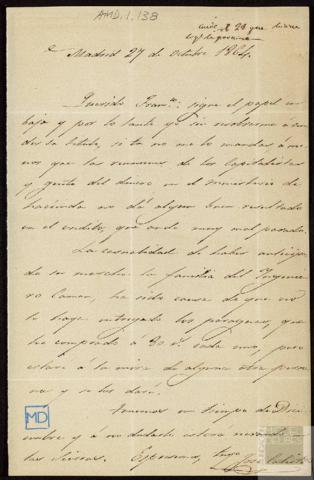 AMD, 1, 138
Madrid 27 de Octubre 1864.
Querido Fran.co: sigue el papel en
baja y por lo tanto yo sin
la tuya, si tu no me lo mandas á me
nos que las reuniones de los Capitalistas
y gente del dinero en el Ministerio de
hacienda no dé algun buen resultado
en el credito, que anda muy mal parado.
La casualidad de haber anticipa
do su marcha la familia del Ingenie
ro ha sido causa de que no
le haya entregado los paraguas, que
he comprado á 30 r.s cada uno, pero
estaré á la mira de alguna otra perso
na y se los daré.
Tenemos un tiempo de Dici
embre y á no dudarlo estará nevando
en las Sierras. tuyo
MD